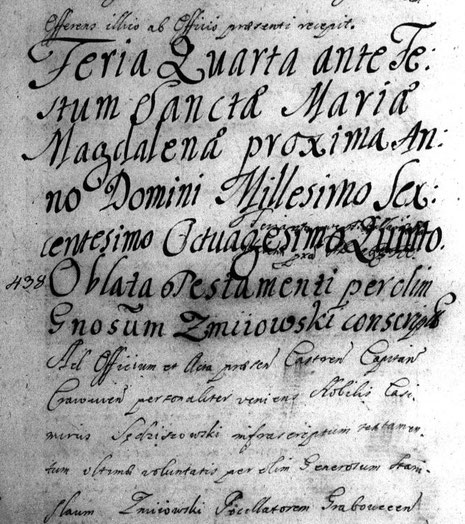 Offerens illico ab Officio præsenti recepit.
Feria Quarta ante Fe:
stum Sanctæ Mariæ
Magdalenæ proxima An:
no Domini Millesimo Sex
centesimo Octuagesimo Quinto.
438 Oblata Testamenti per olim
Gnosum Zmiiowski conscripti
Ad Officium et Acta præsen Castren Capitan
Cracovien personaliter veniens Nobilis Casi
mirus Sędziszowski infrascriptum testamen-
tum ultimæ voluntatis per olim Generosum Stani-
slaum Zmiiowski Pocillatorem Grabovecen